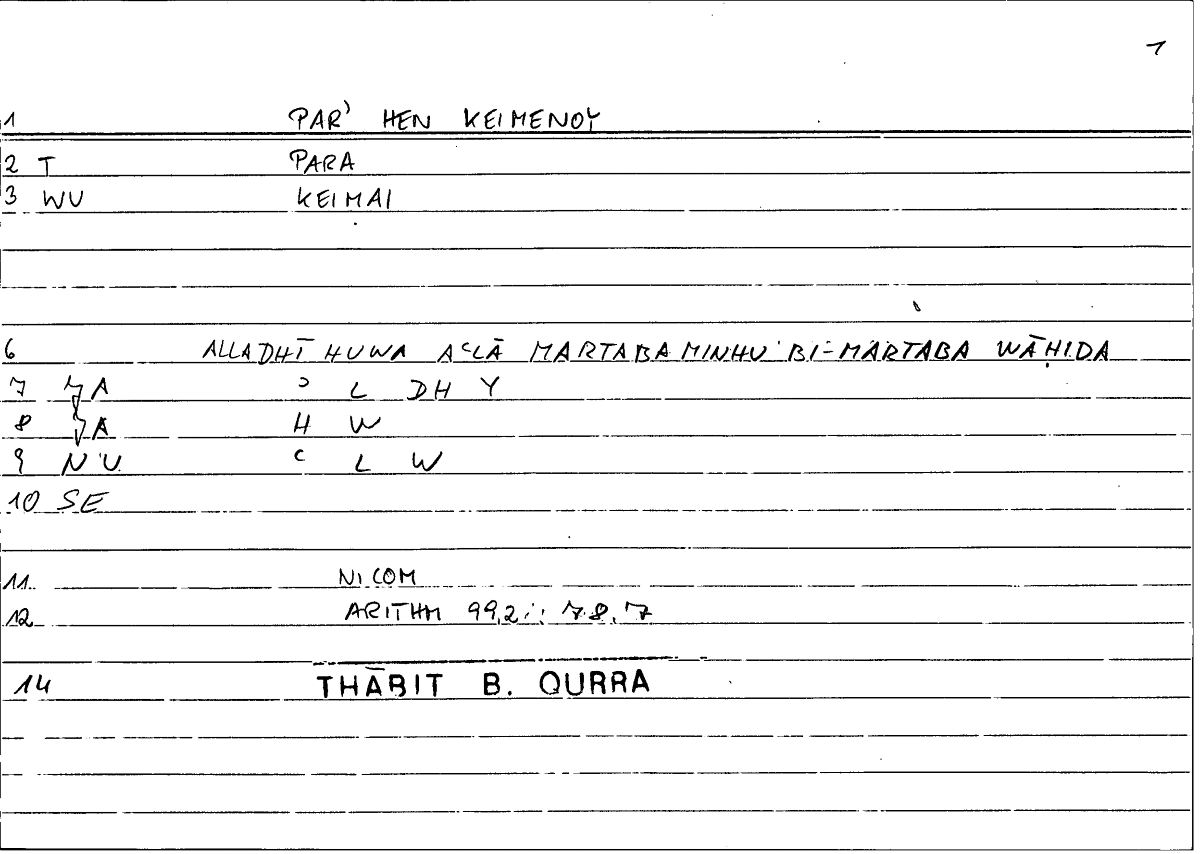 1
1 PAR' HEN KEIMENOY
2 T PARA
3 WU KEIMAI
6 ALLADHĪ HUWA AʿLĀ MARTABA MINHU BI-MARTABA WĀḤIDA
7 A ʾ L DH Y
8 A H W
9 NU ʿ L W
10 SE
11 NICOM
12 ARITHM 99,2 :: 78,7
14 THĀBIT B. QURRA